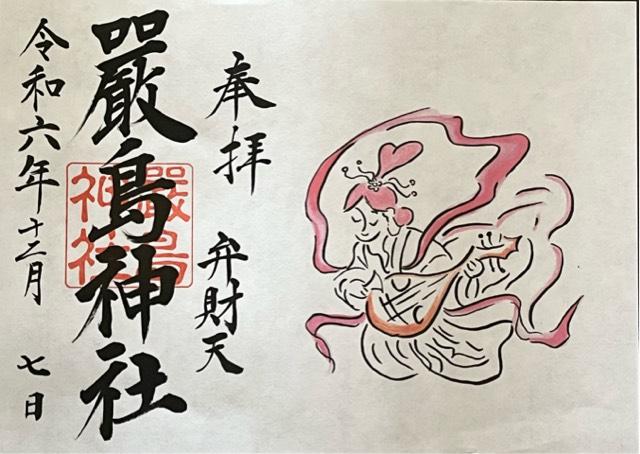 奉拝
弁財天
嚴島神社
嚴島
神社
令和六年十二月 七日